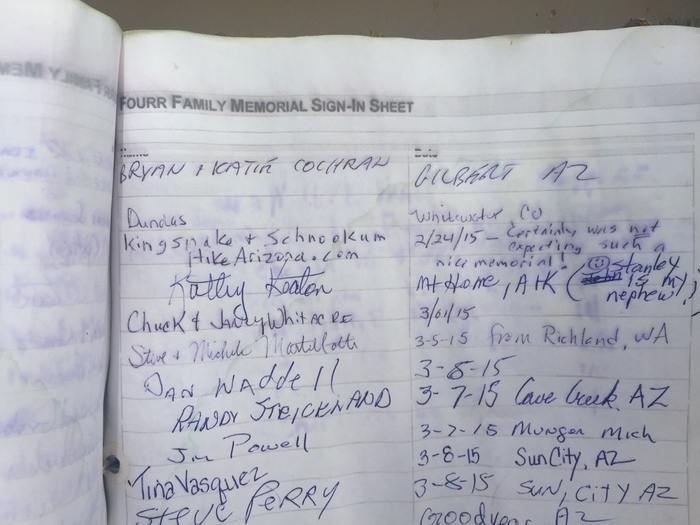 FOURR FAMILY MEMORIAL SIGN-IN SHEET
Name Date
BRYAN + KATIE COCHRAN GILBERT AZ
Dundas Whitewater CO
Kingsnake + Schnookum 2/24/15 - Certainly was not
HikeArizona.com expecting such a
nice memorial!
Kathy Keaton Mt Home, ARK ( Stanley
is my
nephew!)
Chuck & Whitacre 3/01/15
Steve + Michele 3-5-15 from Richland, WA
DAN WADDELL 3-8-15
RANDY STRICKLAND 3-7-15 Cave Creek, AZ
Jim Powell 3-7-15 Munger Mich
Tina Vasquez 3-8-15 Sun City, AZ
STEVE PERRY 3-8-15 SUN, CITY AZ
Goodyear AZ